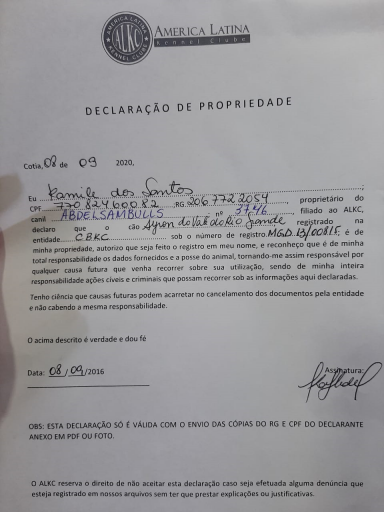 AMERICA LATINA
KENNEL CLUBS
ALKC
AMERICA LATINA
Kennel Clubs
DECLARAÇÃO DE PROPRIEDADE
Cotia, 08 de 09 2020,
Eu Kamile dos Santos
CPF 770 824 600 82 RG 206 772 2054, proprietário do
canil ABDELSAMBULLS nº 3746 filiado ao ALKC,
declaro que o cão Ayron do Vale do Rio Grande registrado na
entidade CBKC sob o número de registro MGD 13/00815, é de
minha propriedade, autorizo que seja feito o registro em meu nome, e reconheço que é de minha
total responsabilidade os dados fornecidos e a posse do animal, tornando-me assim responsável por
qualquer causa futura que venha recorrer sobre sua utilização, sendo de minha inteira
responsabilidade ações cíveis e criminais que possam recorrer sob as informações aqui declaradas.
Tenho ciência que causas futuras podem acarretar no cancelamento dos documentos pela entidade
e não cabendo a mesma responsabilidade.
O acima descrito é verdade e dou fé
Data: 08/09/2016
Assinatura:
OBS: ESTA DECLARAÇÃO SÓ É VÁLIDA COM O ENVIO DAS CÓPIAS DO RG E CPF DO DECLARANTE
ANEXO EM PDF OU FOTO.
O ALKC reserva o direito de não aceitar esta declaração caso seja efetuada alguma denúncia que
esteja registrado em nossos arquivos sem ter que prestar explicações ou justificativas.